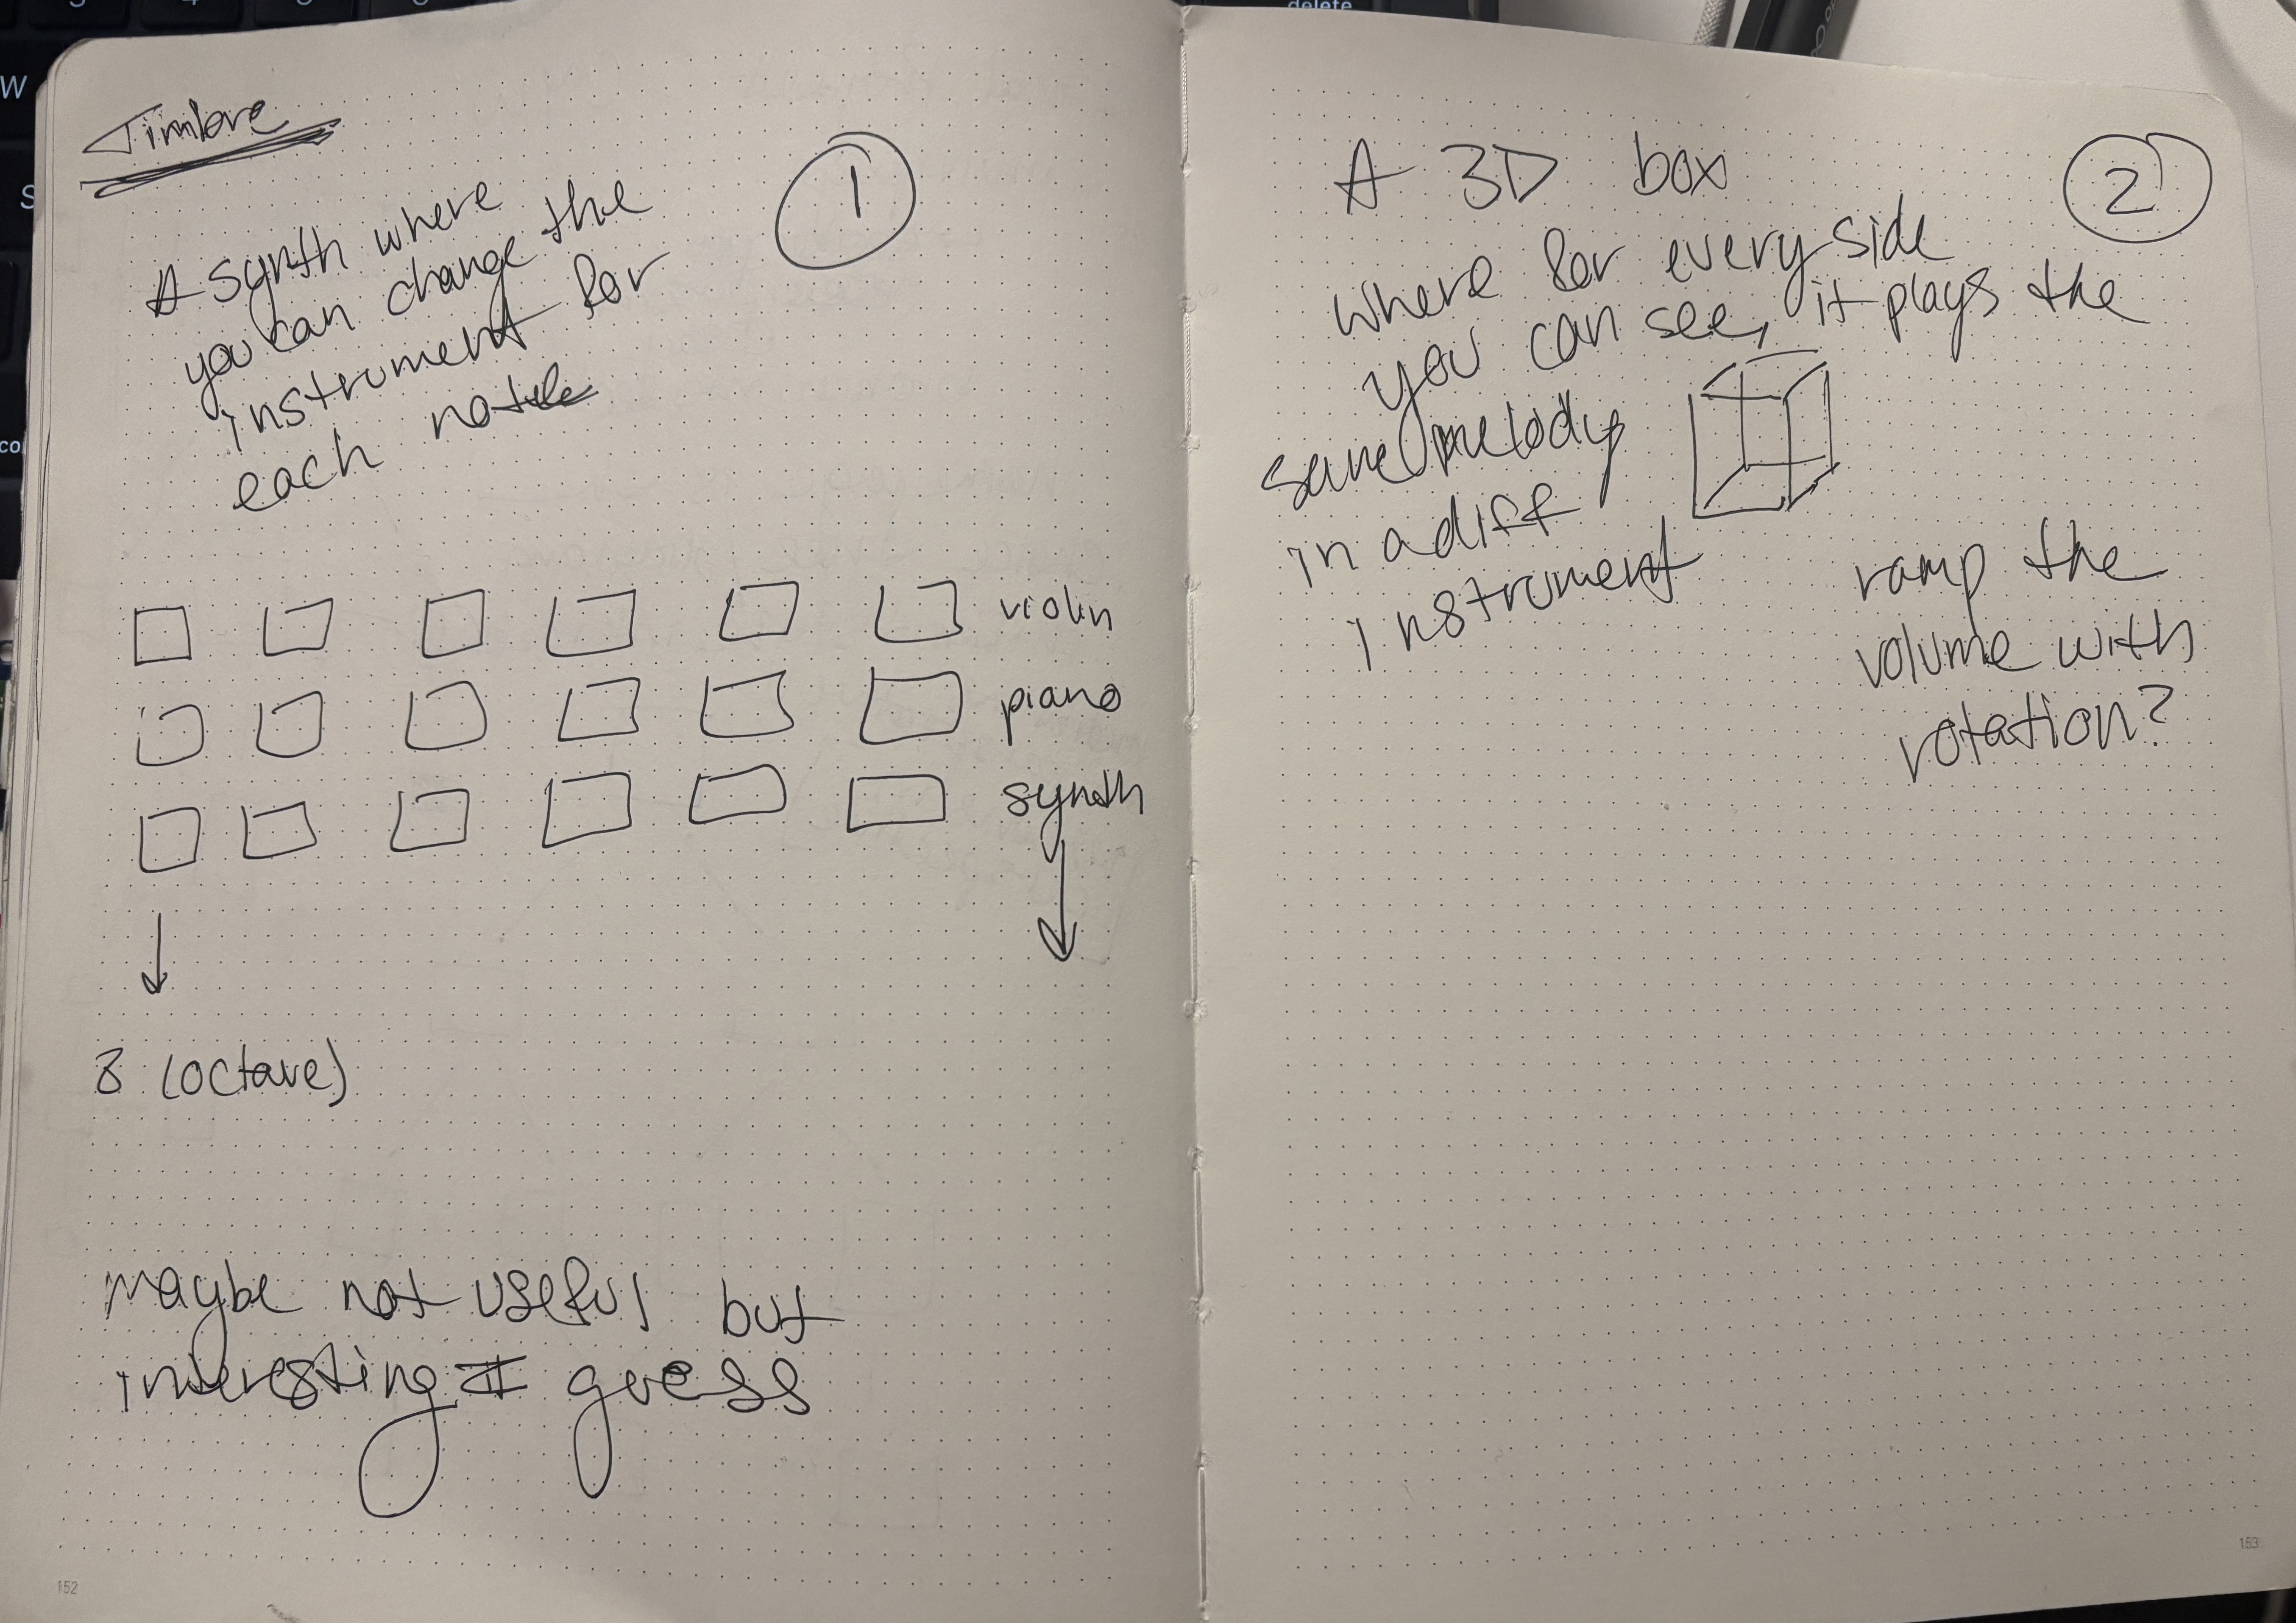 Timbre
1
A synth where
you can change the
instrument for
each note
violin
piano
synth
8 (octave)
maybe not useful but
interesting I guess
152
A 3D box
2
where for every side
you can see, it plays the
same melody
in a diff
instrument
ramp the
volume with
rotation?
153
delete
W
S